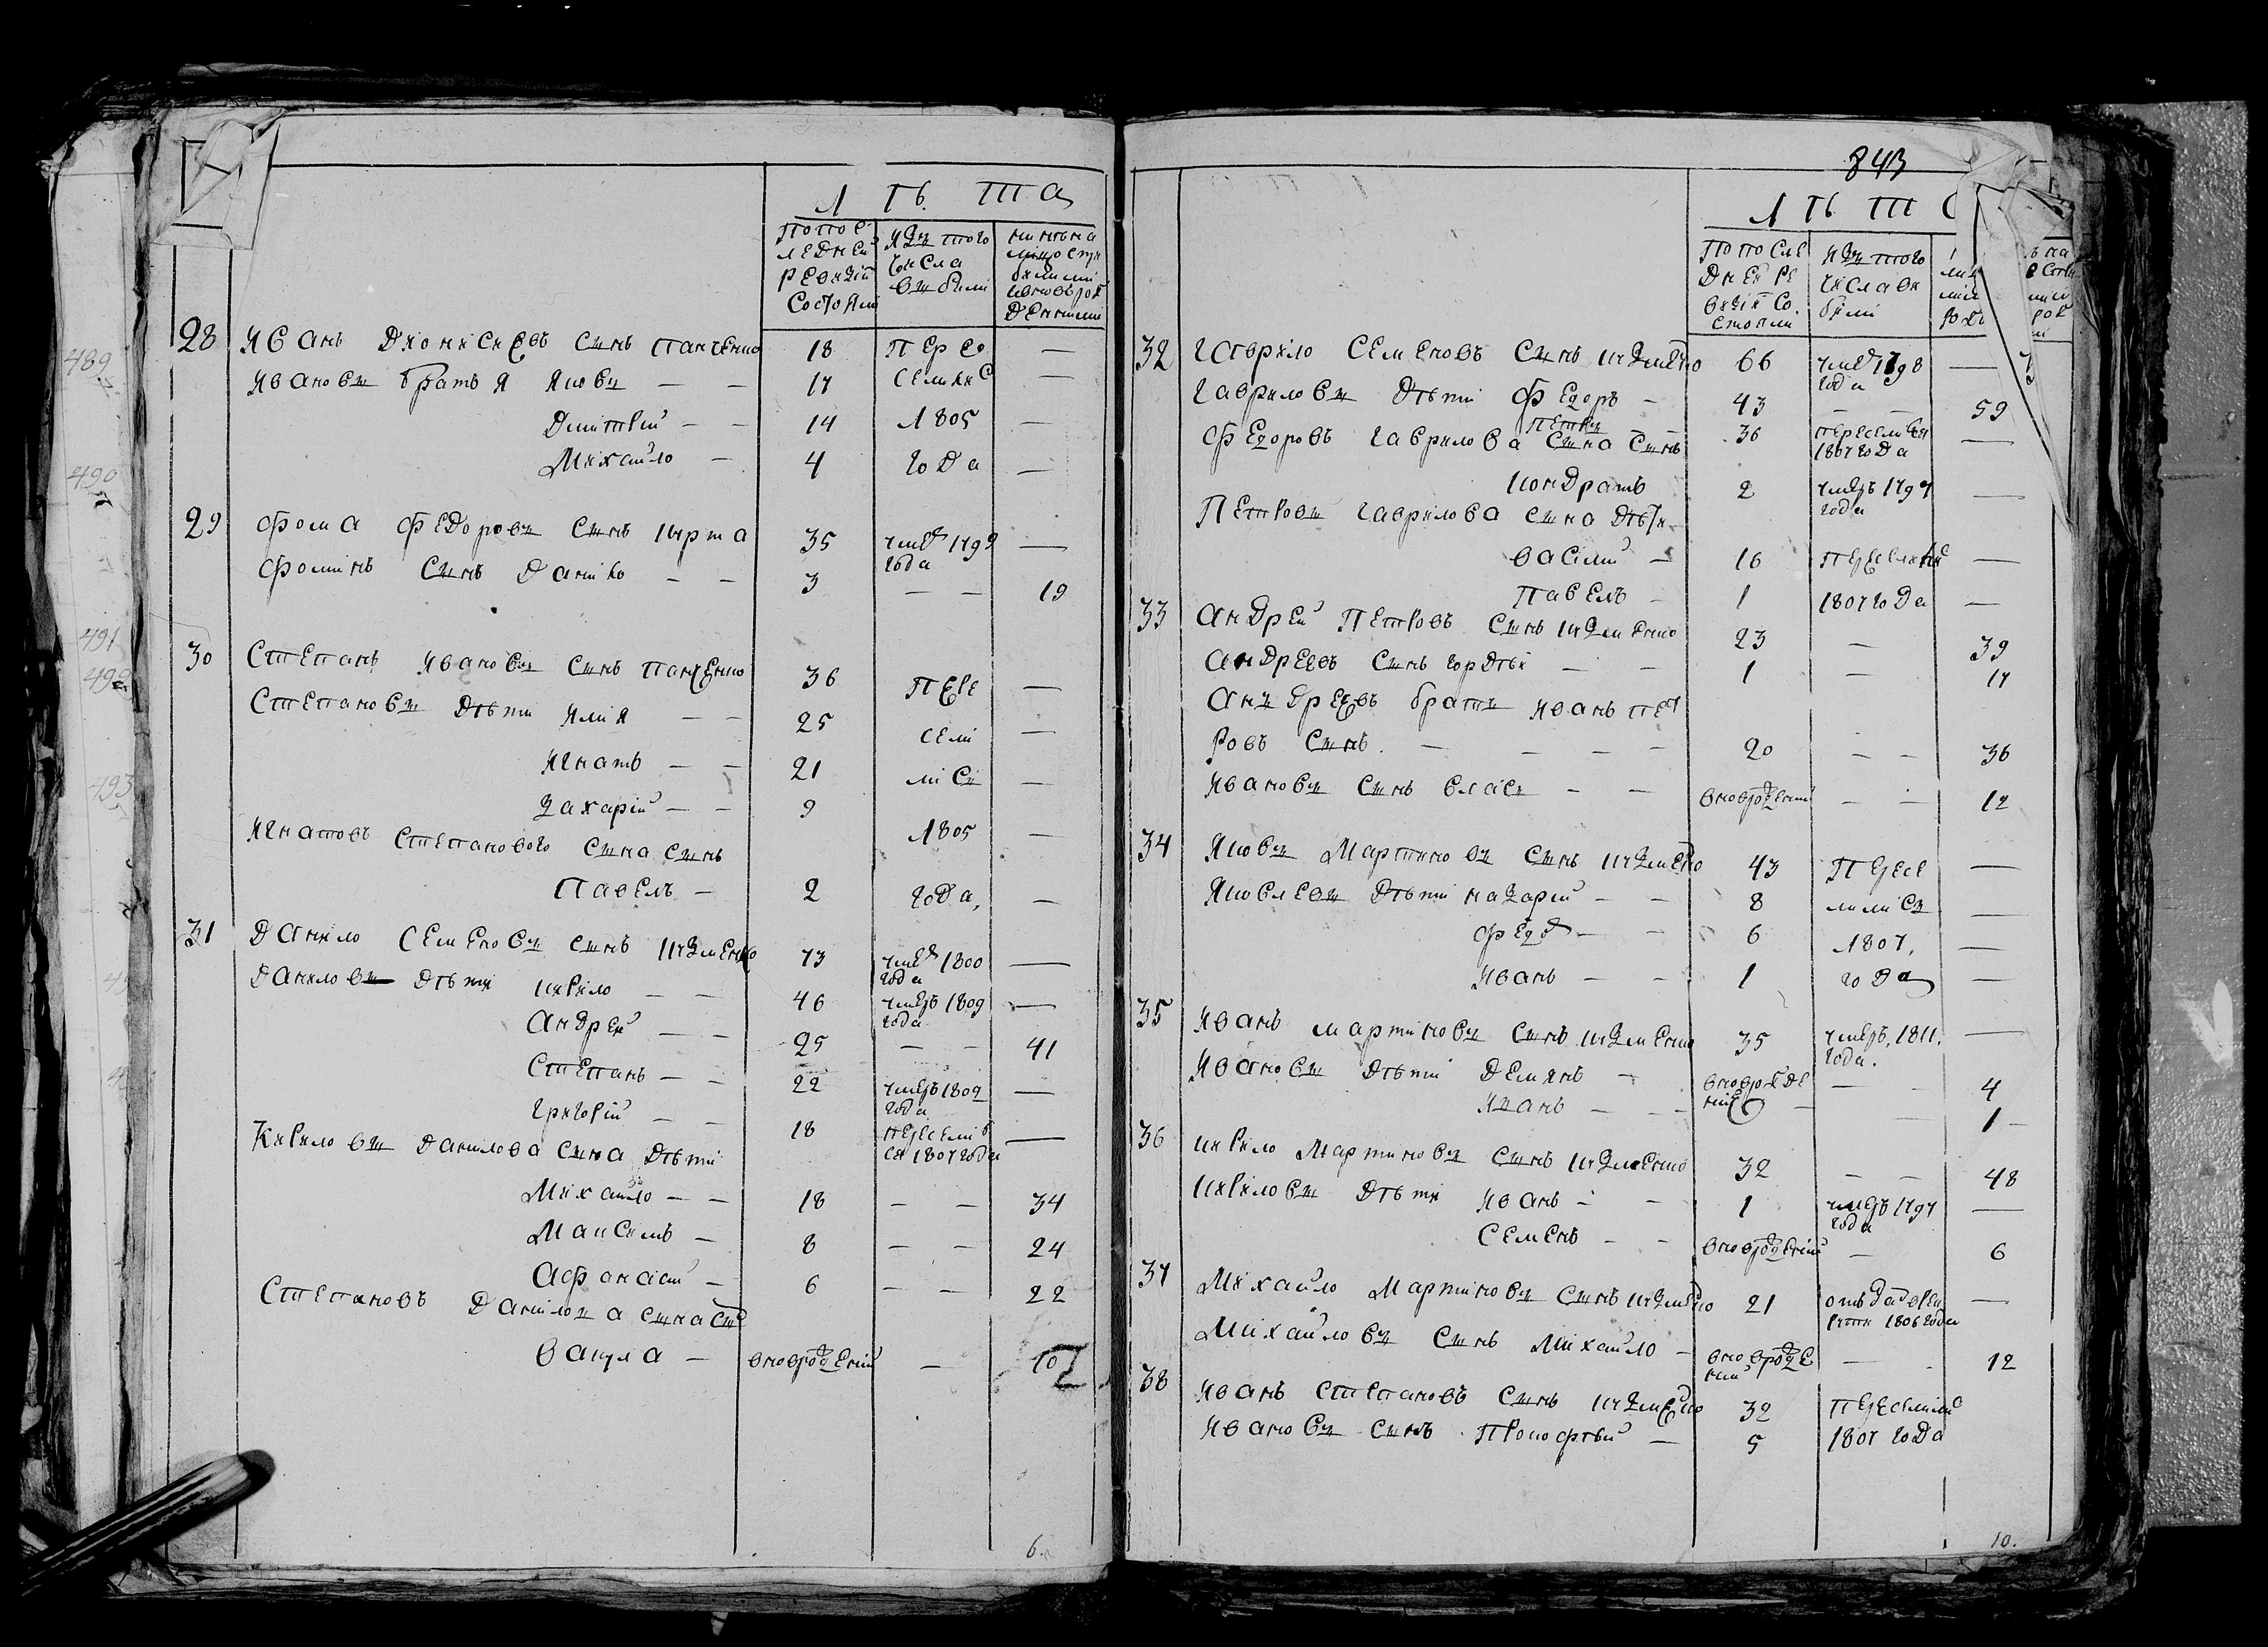 Л Ѣ Т А
По пос
ледней
ревизіи
состояли
Изъ того
числа
выбыли
ныне на
лицо съ
28 Иванъ Дионисиевъ сынъ Панченко 18 Пере —
Ивановы братья Яковъ — — 17 селились —
Дмитрій — — 14 1805 —
Михайло — 4 года —
29 Фома Федоровъ сынъ 35 умер 1799 года —
Фоминъ сынъ Данило — — 3 — — 19
30 Степанъ Ивановъ сынъ Панченко 36 Пере —
Степановы дѣти Илия — — 25 сели —
Игнатъ — — 21 лись —
Захарій — — 9
Игнатовъ Степанового сына сынъ 1805 —
Павелъ — 2 года, —
31 Данило Семеновъ сынъ Кузменко 73 умер 1800 года —
Даниловы дѣти Кирило — — 46 умеръ 1809 года —
Андрей — — 25 — — 41
Степанъ — — 22 умеръ 1809 года —
Григорій — — 18 переселился 1807 года —
Кириловы Данилова сына дѣти
Михайло — — 18 — — 34
Максимъ — 8 — — 24
Афанасій — 6 — — 22
Степановъ Данилова сына
Вакула — вновь рожденій — 10
6.
843
Л Ѣ Т
По после
дней ре
визіи со
стояли
Изъ того
числа вы
были
32 Гаврило Семеновъ сынъ Кузменко 66 умер 1798 года —
Гавриловы дѣти Федоръ — 43 — — 59
Петръ 36 переселился 1807 года —
Федоровъ Гаврилова сына сынъ
Кондратъ 2 умеръ 1797 года —
Петровы Гаврилова сына дѣти
Василій — 16 переселились —
Павелъ — 1 1807 года —
33 Андрей Петровъ сынъ Кузменко 23 — 39
Андреевъ сынъ Гордѣй — — 1 — 17
Андреевъ братъ Иванъ Пет
ровъ сынъ. — — — — 20 — — 36
Ивановъ сынъ Власъ — — вновь рожденій — — 12
34 Яковъ Мартиновъ сынъ Кузменко 43 Пересе —
Яковлевы дѣти Назарій — — 8 лились —
Федор — — 6 1807, —
Иванъ — — 1 года —
35 Иванъ Мартиновъ сынъ Кузменко 35 умеръ, 1811. года. —
Ивановы дѣти Демянъ — вновь рожде ній — — 4
Иванъ — — — — 1 —
36 Кирило Мартиновъ сынъ Кузменко 32 — — 48
Кириловы дѣти Иванъ — — 1 умеръ 1797 года —
Семенъ — — вновь рожденій — 6
37 Михайло Мартиновъ сынъ Кузменко 21 отъ данъ в рекруты 1806 года —
Михайловъ сынъ Михайло — вновь рожде ній — 12
38 Иванъ Степановъ сынъ Кузменко 32 Переселились
Ивановъ сынъ Прокофѣй — 5 1807 года
10.
489
490
491
492
493